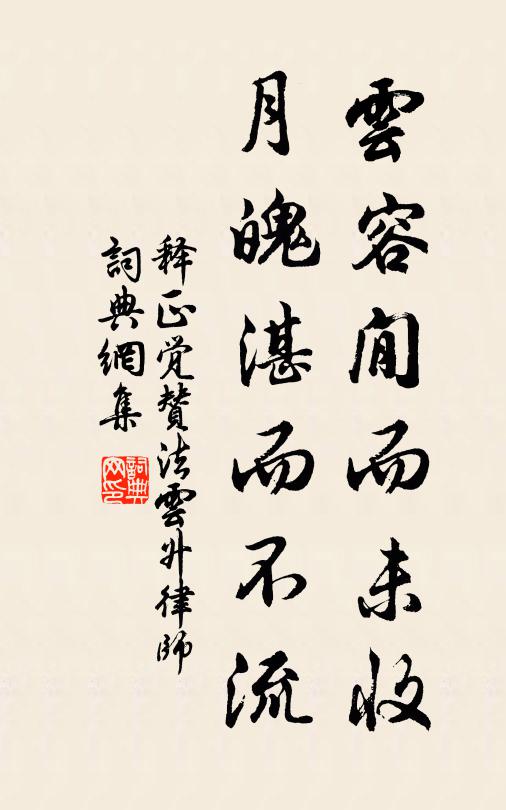 雲容閒而未收
月魄湛而不流
释正覚賛法雲外律師
詞典網集
詞典网印